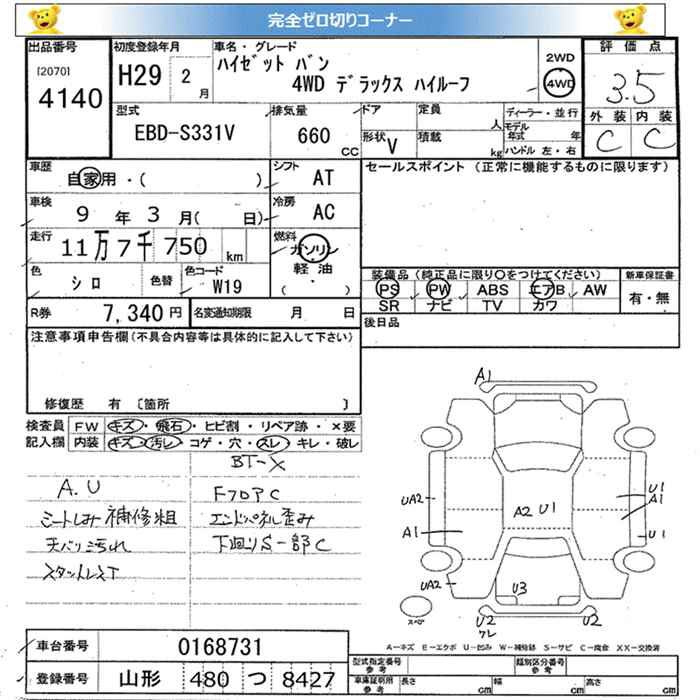 完全ゼロ切りコーナー
出品番号 初度登録年月 車名・グレード 評価点
[2070] 4140 H29 2月 ハイゼット バン 2WD
4WD デラックス ハイルーフ 4WD 3.5
型式 排気量 ドア 定員 人 ディーラー・並行 外装 内装
EBD-S331V 660 CC 形状 V 積載 kg モデル年式 年 C C
ハンドル 左・右
車歴 自家用・( ) シフト AT セールスポイント (正常に機能するものに限ります)
車検 9年 3月( 日) 冷房 AC
走行 11万7千750 km 燃料 ガソリン
軽油
( ・ )
色 シロ 色替 色コード W19 装備品(純正品に限り〇をつけてください) 新車保証書
PS PW ABS エアB AW 有・無
SR ナビ TV カワ
R券 7,340円 名変通知期限 月 日 後日品
注意事項申告欄(不具合内容等は具体的に記入して下さい)
修復歴 有 〔箇所 〕
検査員 FW キズ・飛石・ヒビ割・リペア跡・×要
記入欄 内装 キズ・汚レ・コゲ・穴・スレ・キレ・破レ
BT-X
A.U FフロアC
シートしみ補修粗 エンドパネル歪み
天バリ汚れ 下回りS一部C
スタットレスT
A1
UA2 U1
A1
A2 U1
A1 U1
UA2 U3
スペア U2 U2
ワレ
A=キズ E=エクボ U=凹み W=補修跡 S=サビ C=腐食 XX=交換済
車台番号 0168731
登録番号 山形 480 つ 8427
型式指定番号 参考 類別区分番号 参考
車庫証明用 参考 長さ cm 幅 cm 高さ cm